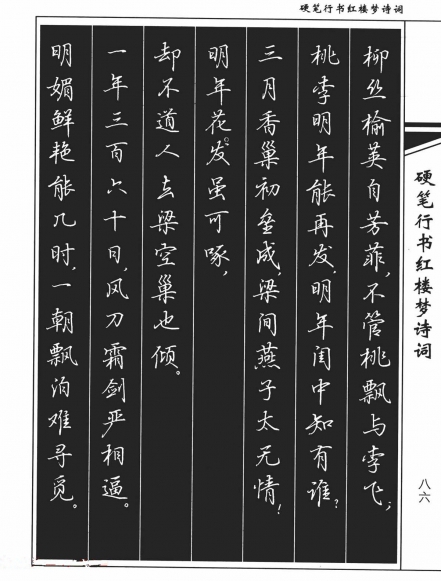 硬笔行书红楼梦诗词
柳丝榆英自芳菲，不管桃飘与李飞；
桃李明年能再发，明年闺中知有谁？
三月香巢初垒成，梁间燕子太无情！
明年花发虽可啄，
却不道人去梁空巢也倾。
一年三百六十日，风刀霜剑严相逼。
明媚鲜艳能几时，一朝飘泊难寻觅。
硬笔行书红楼梦诗词
八六